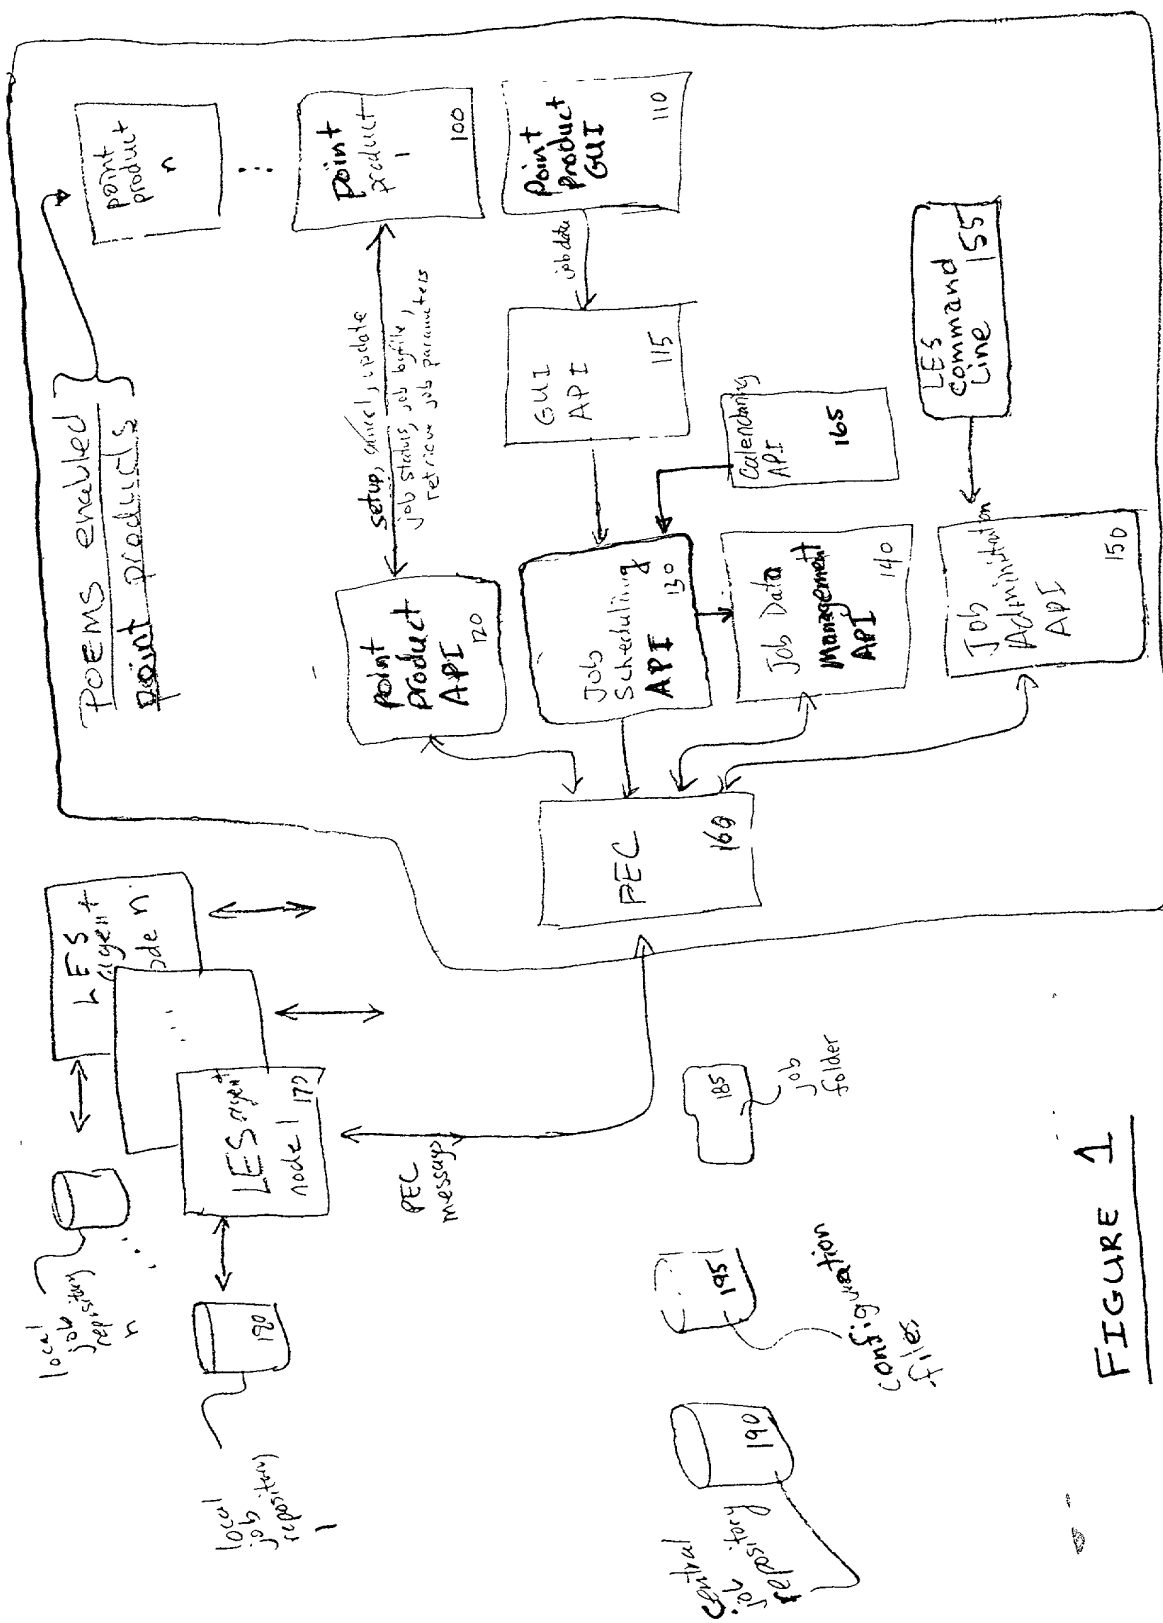 Poems enabled
point products
point
product
n
...
point
product
1
100
Point
Product
GUI
110
setup, cancel, update
job status, job byfile,
retrieve job parameters
job data
GUI
API
115
Calendaring
API
165
LES
Command
Line
155
point
product
API
120
Job
Scheduling
API
130
Job Data
Management
API
140
Job
Administration
API
150
PEC
160
LES
agent
node n
...
LES agent
node 1
170
PEC
message
local
job
repository
n
...
180
local
job
repository
1
185
job
folder
195
configuration
files
190
central
job
repository
FIGURE 1